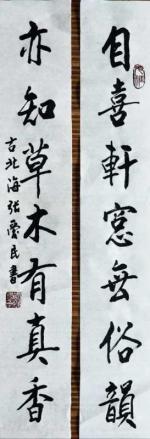 自喜軒窓無俗韻
亦知草木有真香
古北海張慶民書